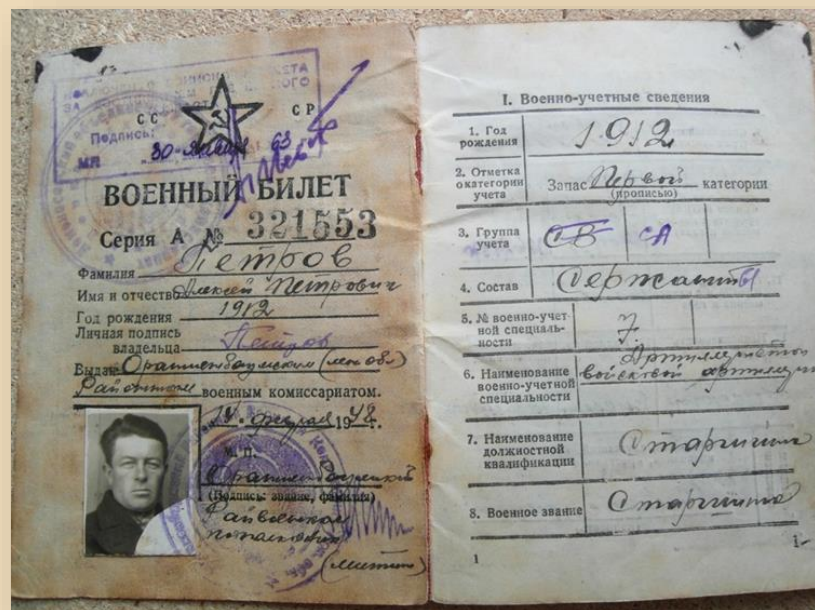 ИСКЛЮЧЕН С ВОИНСКОГО УЧЕТА
ЗА
СС СР
Подпись:
МП 30 января 63
ВОЕННЫЙ БИЛЕТ
Серия А № 321553
Фамилия Петров
Имя и отчество Алексей Петрович
Год рождения 1912
Личная подпись
владельца Петров
Выдан Ораниенбаумским (лен обл)
Районным военным комиссариатом.
14 февраля 1948 г.
М. П.
Ораниенбаумский
(Подпись: звание, фамилия)
Райвоенком
подполковник
I. Военно-учетные сведения
1. Год
рождения 1912
2. Отметка
о категории
учета Запас Первой категории
(прописью)
3. Группа
учета СВ СА
4. Состав Сержанты
5. № военно-учет-
ной специаль-
ности 7
6. Наименование
военно-учетной
специальности Артиллеристы
войсковой артиллерии
7. Наименование
должностной
квалификации Старшина
8. Военное звание Старшина
1